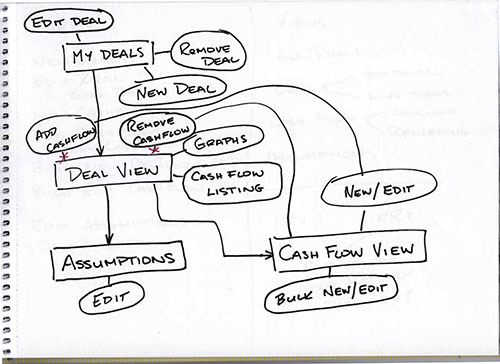 EDIT DEAL
MY DEALS
REMOVE
DEAL
NEW DEAL
ADD
CASHFLOW
REMOVE
CASHFLOW
GRAPHS
DEAL VIEW
CASH FLOW
LISTING
NEW/EDIT
ASSUMPTIONS
EDIT
CASH FLOW VIEW
BULK NEW/EDIT
VIEWS